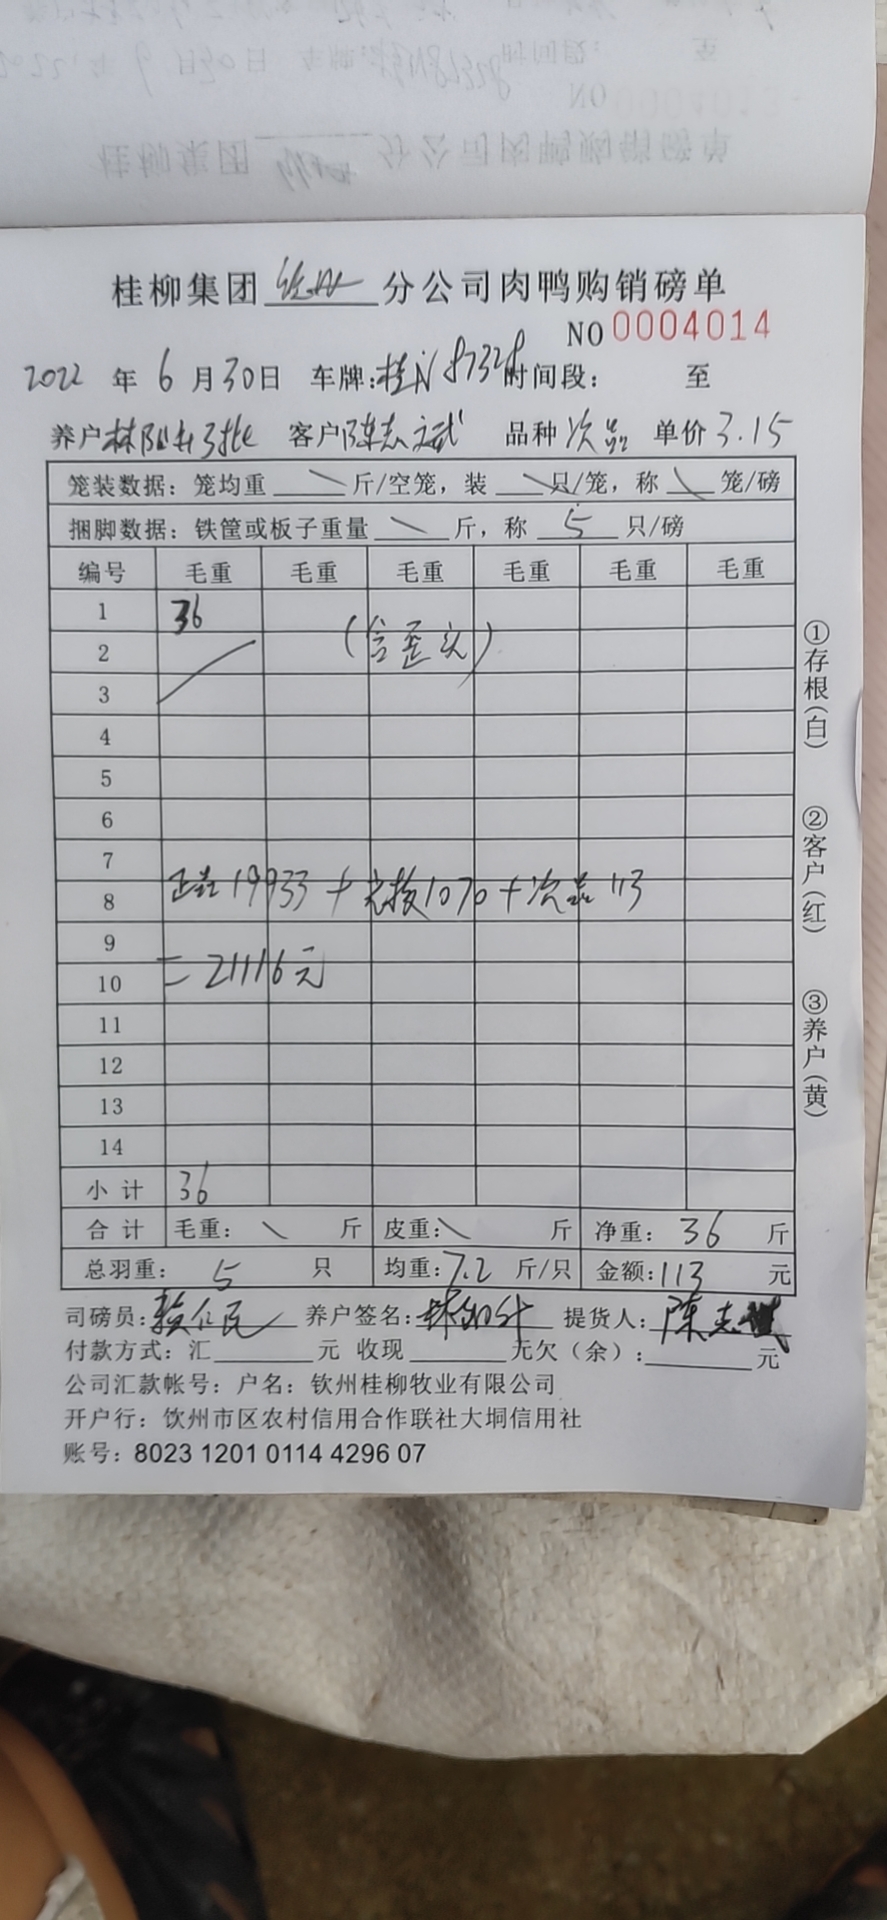 桂柳集团 分公司肉鸭购销磅单
NO 0004014
2022 年 6 月 30 日 车牌:桂N 87328 时间段: 至
养户 林 3批 客户 陈志斌 品种 次品 单价 3.15
笼装数据:笼均重 \ 斤/空笼,装 \ 只/笼,称 \ 笼/磅
捆脚数据:铁筐或板子重量 \ 斤,称 5 只/磅
编号 毛重 毛重 毛重 毛重 毛重 毛重
1 36
2 (含歪头)
3
4
5
6
7
8 正品19933+ 1070+次品113
9
10 =21116元
11
12
13
14
小计 36
合计 毛重: \ 斤 皮重: \ 斤 净重: 36 斤
总羽重: 5 只 均重:7.2 斤/只 金额:113 元
司磅员: 养户签名: 提货人: 陈志斌
付款方式:汇 元 收现 无欠(余): 元
公司汇款帐号:户名:钦州桂柳牧业有限公司
开户行:饮州市区农村信用合作联社大垌信用社
账号:8023 1201 0114 4296 07
①存根(白)
②客户(红)
③养户(黄)